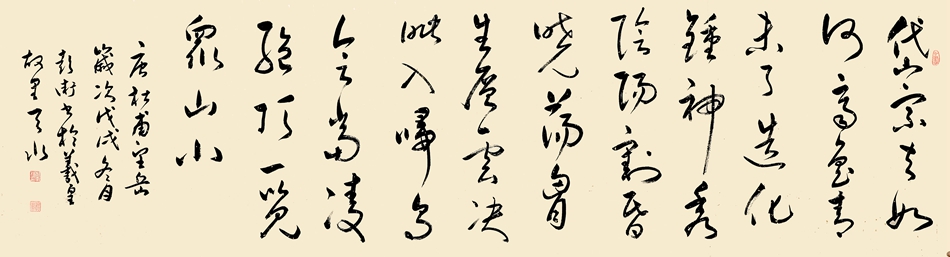 岱宗夫如
何齊魯青
未了造化
鍾神秀
陰陽割昏
曉蕩胸
生層雲决
眦入歸鳥
會當凌
絕頂一覽
眾山小
唐杜甫望岳
歲次戊戌冬月
书於羲皇
故里天水